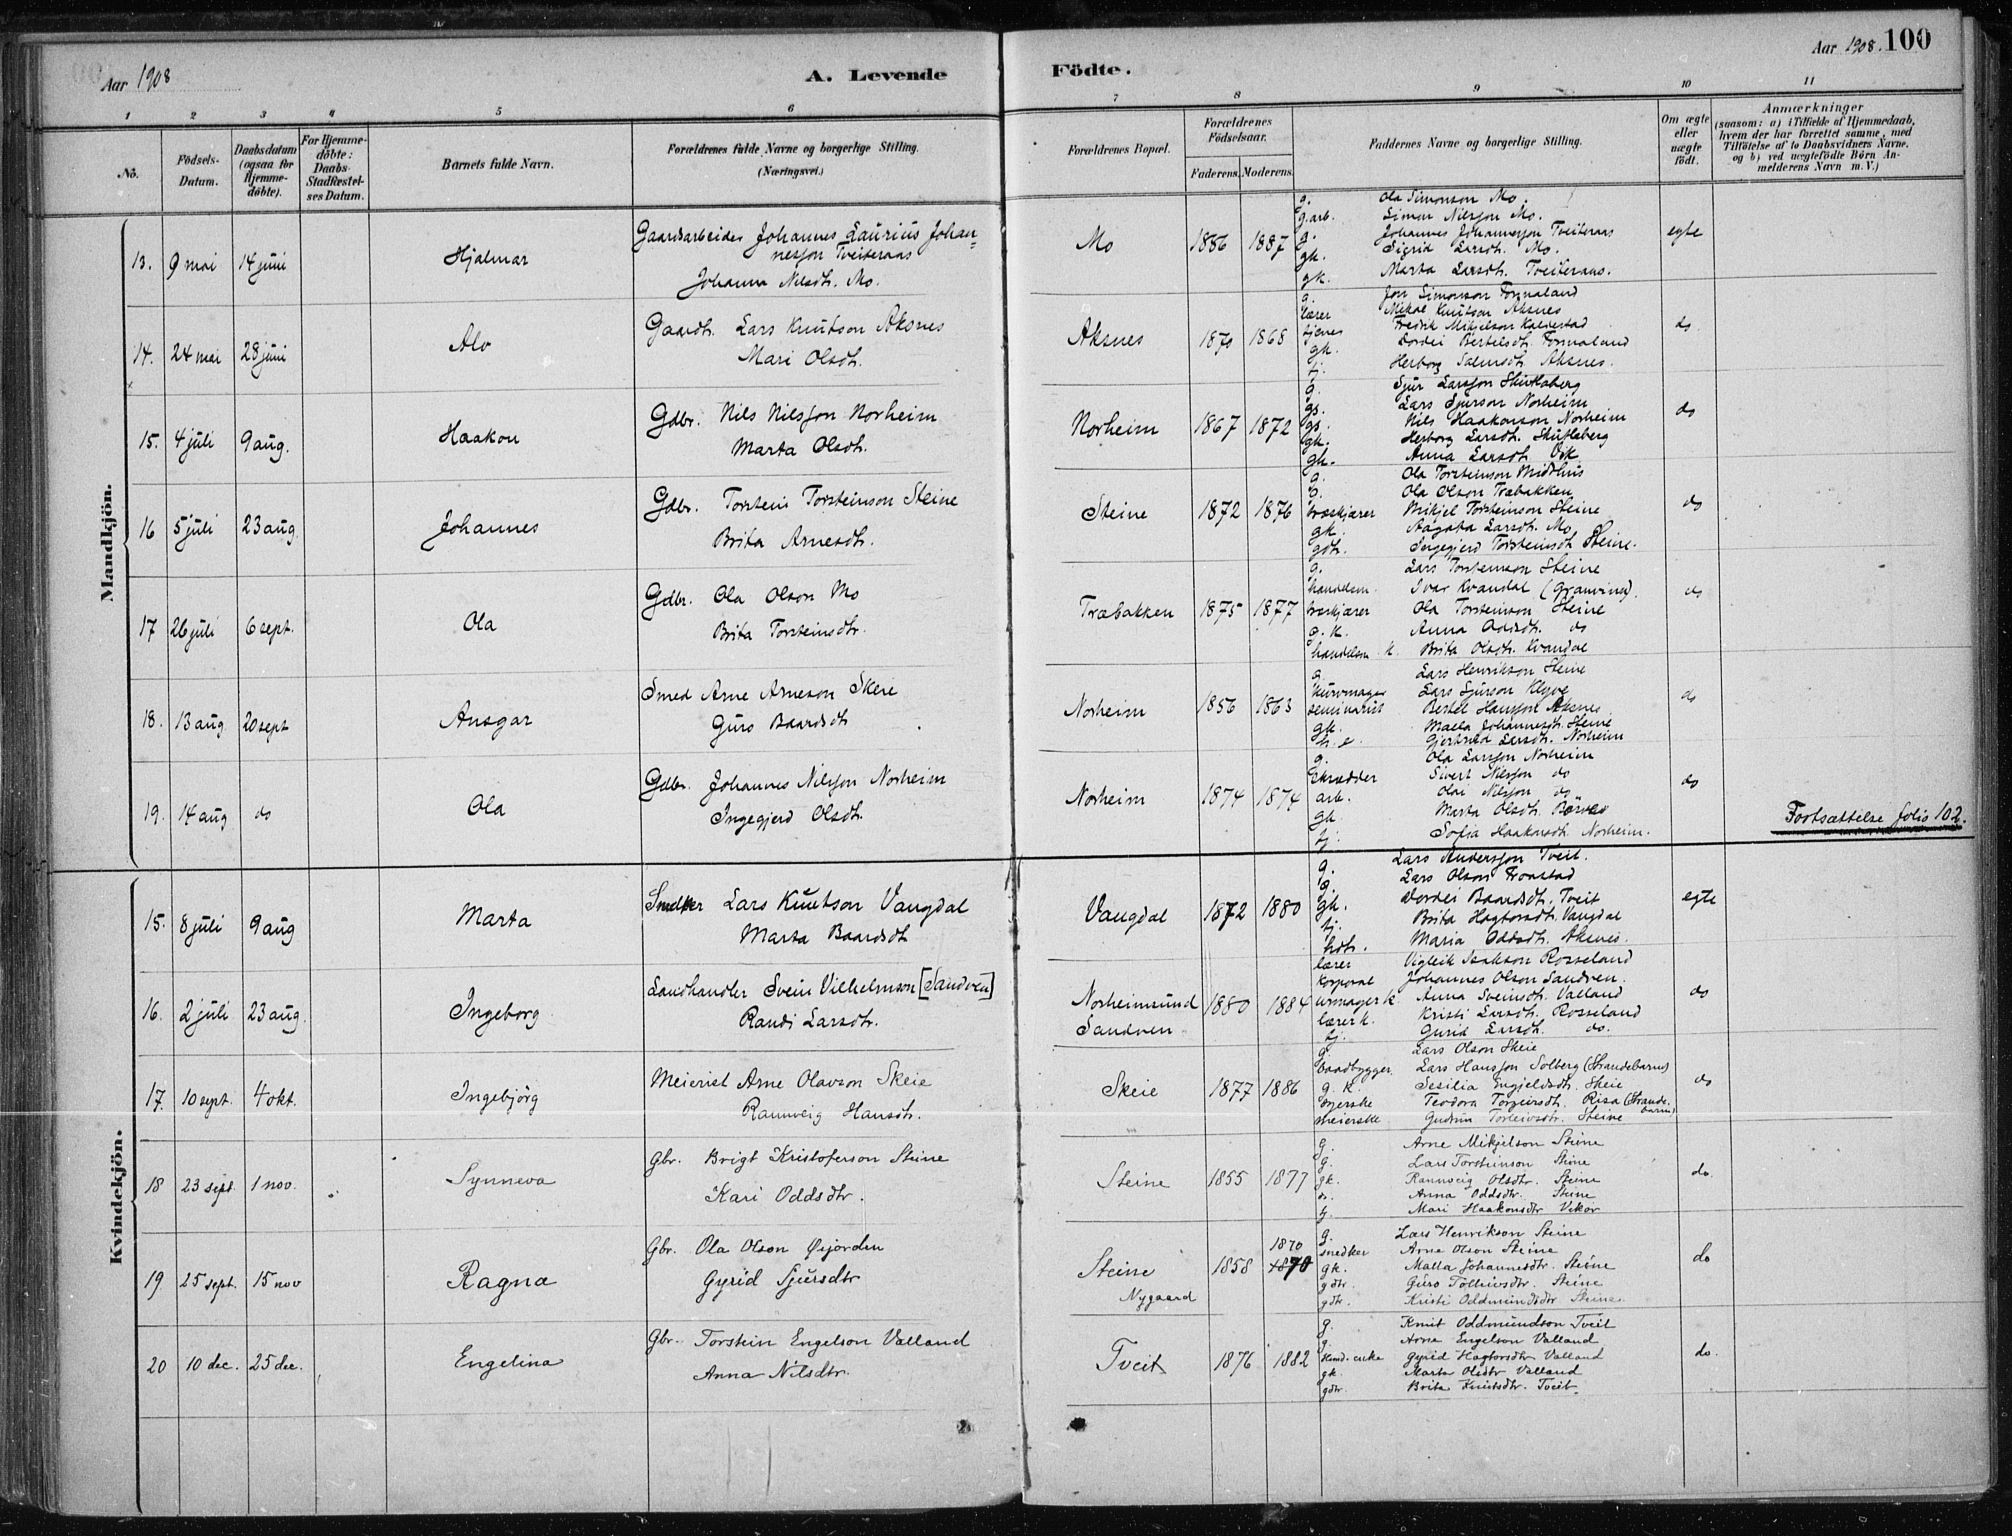 Aar 1908
A. Levende
Fødte.
Aar 1908.
100
1 2 3 4 5 6 7 8 9 10 11
No.
Födsels-Datum.
Daabsdatum (ogsaa for Hjemme-döbte).
For Hjemme-döbte: Daabs-Stadfæstel-ses Datum.
Barnets fulde Navn.
Forældrenes fulde Navne og borgerlige Stilling.
(Næringsvei.)
Forældrenes Bopæl.
Forældrenes Födselsaar.
Faderens. Moderens.
Faddernes Navne og borgerlige Stilling.
Om ægte eller uægte födt.
Anmærkninger
(saasom: a) i Tilfælde af Hjemmedaab,
hvem der har forrettet samme, med
Tilföielse af to Daabsvidners Navne.
og b) ved uægtefödte Börn An-
melderens Navn m. V.)
Mandkjön.
13. 9 mai 14 juni Hjalmar
Gaardsarbeider Johannes Laurius Johan-
nesson Tveiteraas
Johanna Nilsdtr. Mo.
Mo 1886 1887
g. Ola Simonson Mo.
g.arb. Simon Nilsson Mo.
g. Johannes Johannesson Tveiteraas
gk. Sigrid Larsdtr. Mo.
gk. Marta Larsdtr. Tveiteraas.
egte
14. 24 mai 28 juni Alv
Gaardbr. Lars Knutson Aksnes
Mari Olsdtr.
Aksnes 1870 1868
g. Jon Simonson
lærer Mikal Knutson Aksnes
tjener Fredrik Mikjelson
gk. Dordei Bertelsdtr.
tj. Herborg Salmosdtr. Aksnes.
do
15. 4 juli 9 aug. Haakon
Gdbr. Nils Nilsson Norheim
Marta Olsdtr.
Norheim 1867 1872
g. Sjur Larsson Skutlaberg
gs. Lars Sjurson Norheim
gs. Nils Haakonson Norheim
gk. Herborg Larsdtr. Skutlaberg
gk. Anna Larsdtr. Vik
do
16 5 juli 23 aug Johannes
Gdbr. Torstein Torsteinson Steine
Brita Arnesdtr.
Steine 1872 1876
g. Ola Torsteinson Midthus
g. Ola Olson Træbakken
træskjærer Mikjel Torsteinson Steine
gk. Aagata Larsdtr. Mo
gdt. Ingegjerd Torsteinsdtr Steine.
do
17 26 juli 6 sept. Ola
Gdbr. Ola Olson Mo
Brita Torsteinsdtr.
Træbakken 1875 1877
g. Lars Torsteinson Steine
handelsm. Ivar Kvandal (Granvin).
træskjærer Ola Torsteinson Steine
g.k. Anna Oddsdtr. do
handelsm. k. Brita Olsdtr. Kvandal
do
18. 13 aug 20 sept Ansgar
Smed Arne Arneson Skeie
Guro Baardsdtr
Norheim 1856 1863
g. Lars Henrikson Steine
kurvmager Lars Sjurson Klyve
seminarist Bertel Hansson Aksnes
gk. Malla Johannesdtr. Steine
Gjertrud Larsdtr. Norheim
do
19. 14 aug do Ola
Gdbr. Johannes Nilsson Norheim
Ingegjerd Olsdtr.
Norheim 1874 1874
g. Ola Larsson Norheim
Skrædder Sivert Nilsson do
arb. Olai Nilsson do
gk Marta Olsdtr. Børven
tj. Sofia Haakonsdtr Norheim.
do
Fortsættelse folio 102.
Kvindekjön.
15. 8 juli 9 aug Marta
Snedker Lars Knutson Vangdal
Marta Baardsdtr
Vangdal 1872 1880
g. Lars Andersson Tveit.
g. Lars Olson
gk. Dordei Baardsdtr. Tveit
tj. Brita Hagtorsdtr. Vangdal
hdt. Maria Oddsdtr. Aksnes.
egte
16. 2 juli 23 aug. Ingeborg
Landhandler Svein Vilhelmson [Sandven]
Randi Larsdtr.
Norheimsund
Sandven 1880 1884
lærer Vigleik Isakson Rosseland
korporal Johannes Olson Sandven.
urmager k. Anna Sveinsdtr. Valland
lærer k. Kristi Larsdtr. Rosseland
tj. Gurid Larsdtr. do.
do
17. 10 sept. 4 okt. Ingebjörg
Meierist Arne Olavson Skeie
Rannveig Hansdtr.
Skeie 1877 1886
g. Lars Olson Skeie
baadbygger Lars Hansson Solberg (Strandebarm)
g.k. Sesilia Ingjeldsdtr. Skeie
Teodora Torgeirsdtr. Risa (Strande-
barm)
meierske Gudrun Torleivsdtr. Steine
do
18 23 sept. 1 nov. Synneva
Gbr. Brigt Kristoferson Steine
Kari Oddsdtr.
Steine 1855 1877
g. Arne Mikjelson Steine
g. Lars Torsteinson Steine
gk. Rannveig Olsdtr. Steine
Anna Oddsdtr. Steine
tj. Mari Haakonsdtr Vikør
do.
19 25 sept. 15 nov Ragna
Gbr. Ola Olson Øijorden
Gyrid Sjursdtr
Steine
Nygaard 1858 1870
1870
g. Lars Henrikson Steine
snedker Arne Olson Steine
gk. Malla Johannesdtr. Steine
gdtr. Guro Tolleivsdtr. Steine
gdtr. Kristi Oddmundsdtr Steine
do
20 10 dec. 25 dec. Engelina
Gbr. Torstein Engelson Valland
Anna Nilsdtr.
Tveit 1876 1882
g. Knut Oddmundson Tveit
g. Arne Engelson Valland
enke Gyrid Hagtorsdtr Valland
gk. Marta Olsdtr Valland
gdtr. Brita Knutsdtr. Tveit
do.